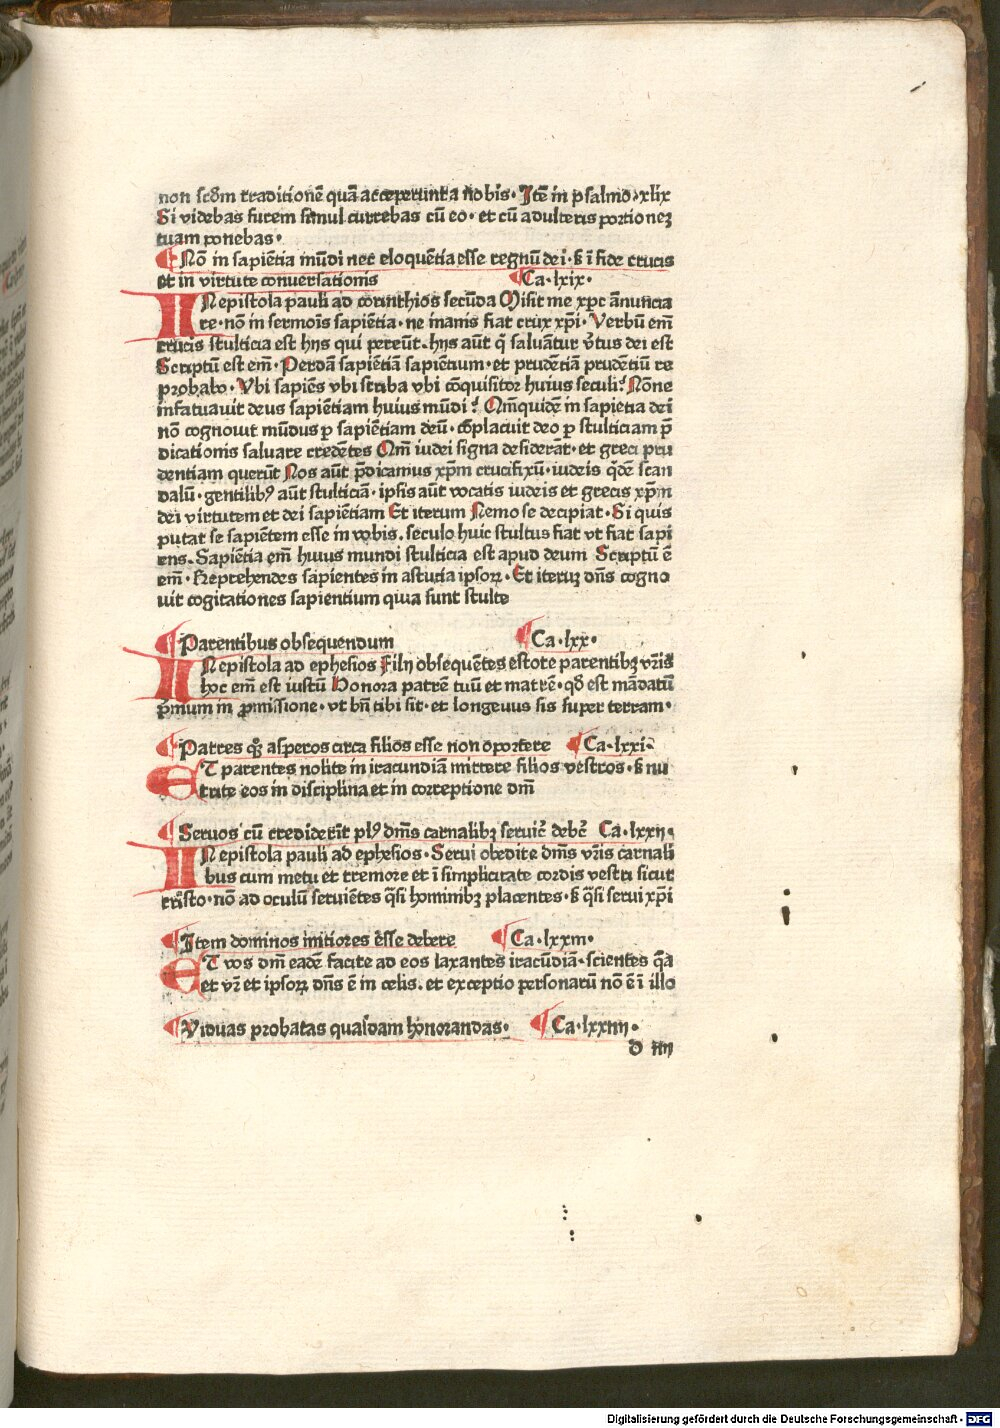 non scd̄m traditionē quā acceperunt a nobis· Itē in psalmo·xlix
Si videbas furem simul currebas cū eo·et cū adulteris portionez
tuam ponebas·
Nō in sapiētia mūdi nec eloquētia esse regnū dei·s̄ ī fide crucis
et in virtute conuersationis Ca·lxix·
IN epistola pauli ad corinthios secūda Misit me xp̄c ānuncia
re·nō in sermoīs sapiētia·ne inanis fiat crux xp̄i·Verbū em̄
crucis stulticia est hijs qui pereūt·hijs aūt q̄ saluātur v̄tus dei est
Scriptū est em̄·Perdā sapiētiā sapientium·et prudētiā prudētiū re
probabo·Vbi sapiēs vbi scriba vbi cōquisitor huius seculi? Nōne
infatuauit deus sapiētiam huius mūdi? Qm̄ quidē in sapiētia dei
nō cognouit mūdus p̱ sapiētiam deū·cōplacuit deo p̱ stulticiam p̄
dicationis saluare credētes Qm̄ iudei signa desiderāt·et greci pru
dentiam querūt Nos aūt p̄dicamus xp̄m crucifixū·iudeis q̇dē scan
dalū·gentilibꝰ aūt stulticiā·ipsis aūt vocatis iudeis et grecis xp̄m
dei virtutem et dei sapiētiam Et iterum Nemo se decipiat·Si quis
putat se sapiētem esse in vobis. seculo huic stultus fiat vt fiat sapi
ens. Sapiētia em̄ huius mundi stulticia est apud deum Scriptū ē
em̄·Reprehendes sapientes in astutia ipsoꝝ·Et iteruz dn̄s cogno
uit cogitationes sapientium quia sunt stulte
Parentibus obsequendum Ca·lxx·
IN epistola ad ephesios Filij obsequētes estote parentibꝫ vr̄is
hoc em̄ est iustū Honora patrē tuū et matrē·qd̄ est mādatū
p̄mum in ꝓmissione·vt bn̄ tibi sit·et longeuus sis super terram·
Patres qꝫ asperos circa filios esse non oportere Ca·lxxi·
ET parentes nolite in iracundiā mittere filios vestros·s̄ nu
trite eos in disciplina et in correptione dn̄i
Seruos cū crediderīt plꝰ dn̄is carnalibꝫ seruiē debē Ca·lxxij·
IN epistola pauli ad ephesios·Serui obedite dn̄is vr̄is carnali
bus cum metu et tremore et ī simplicitate cordis vestri sicut
cristo·nō ad oculū seruiētes q̄si hominibꝫ placentes·s̄ q̄si serui xp̄i
Item dominos mitiores esse debere Ca·lxxiij·
ET vos dn̄i eadē facite ad eos laxantes iracūdiā·scientes q̄a
et vr̄ et ipsoꝝ dn̄s ē in celis. et exceptio personarū nō ē ī illo
Viduas probatas quasdam honorandas· Ca·lxxiiij·
d iiij
Digitalisierung gefördert durch die Deutsche Forschungsgemeinschaft - DFG